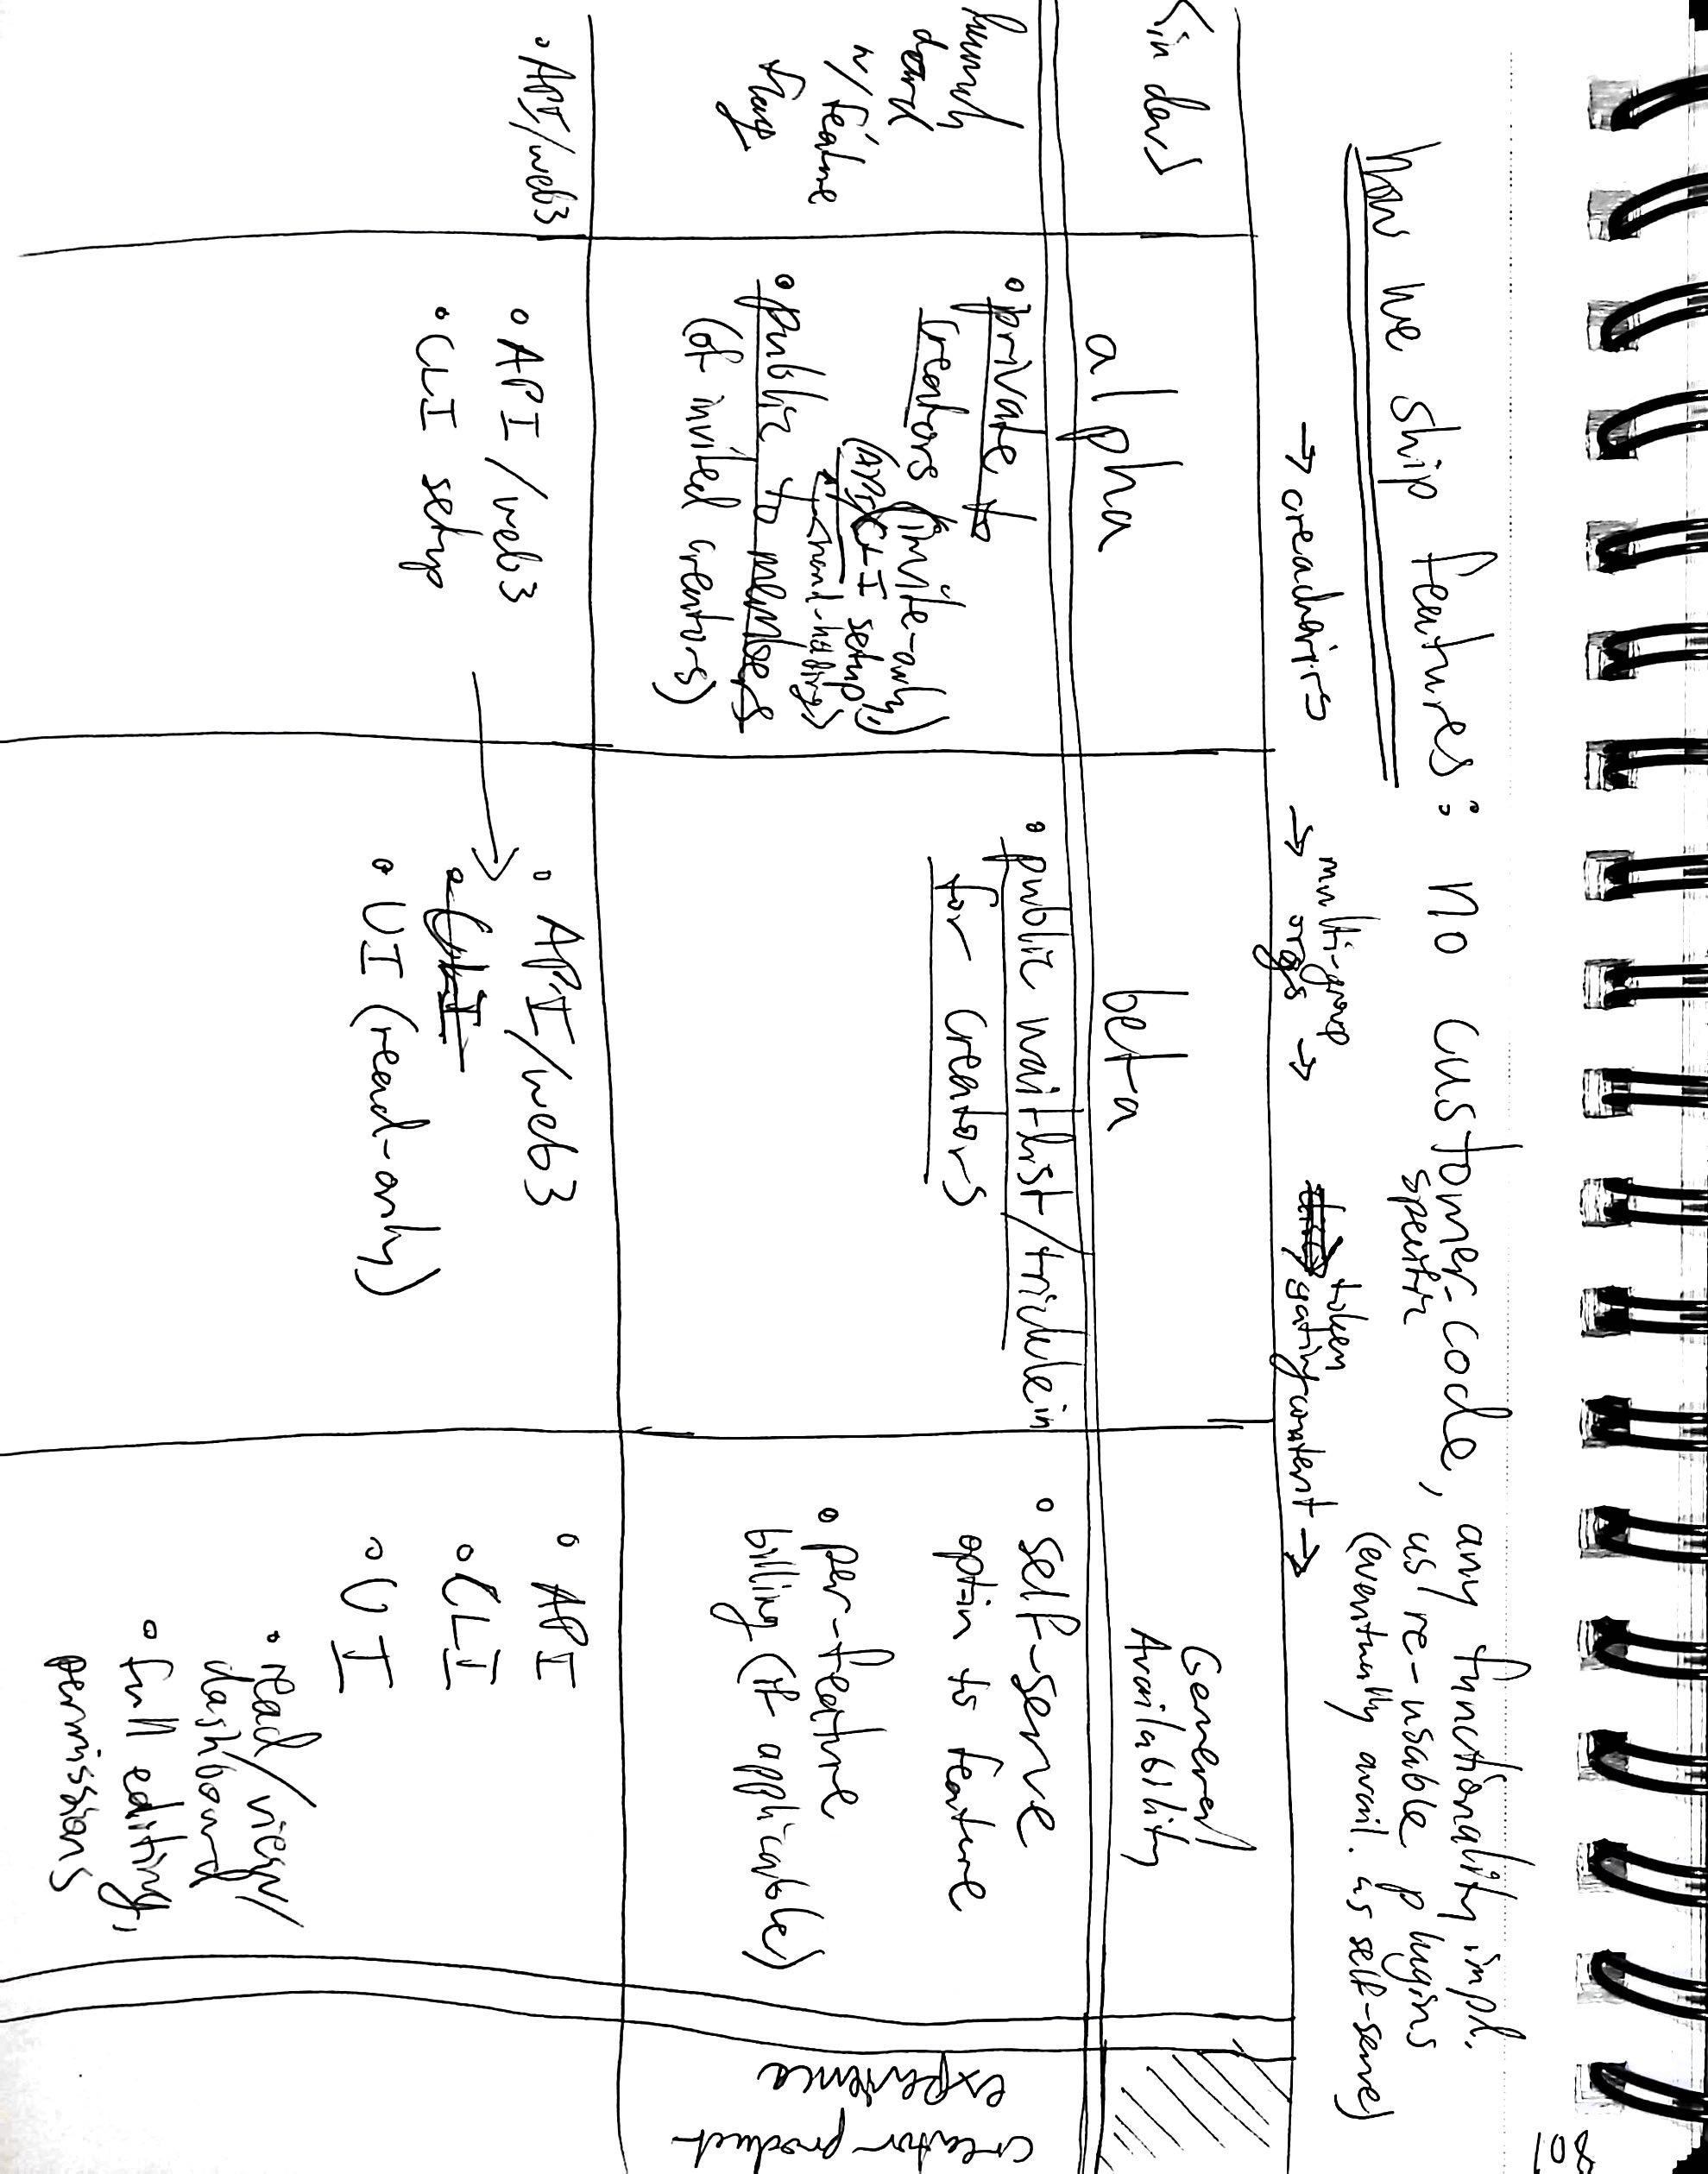 108
how we ship features: no customer-specific code, any functionality impl.
as re-usable plugins
(eventually avail. as self-serve)
→ creadnirs → multi-group orgs → token gating content →
<in dev>
alpha
beta
General
Availability
launch
w/ feature
flag
• private to
creators (invite-only)
(API/CLI setup,)
hand-holding>
• public to members
(of invited creators)
• public waitlist/trickle in
for creators
• self-serve
opt-in to feature
• per-feature
billing (if applicable)
creator product
experience
• API/web3
• API/web3
• CLI setup
• API/web3
• CLI
• UI (read-only)
• API
• CLI
• UI
• read/view/
dashboard
• full editing,
permissions